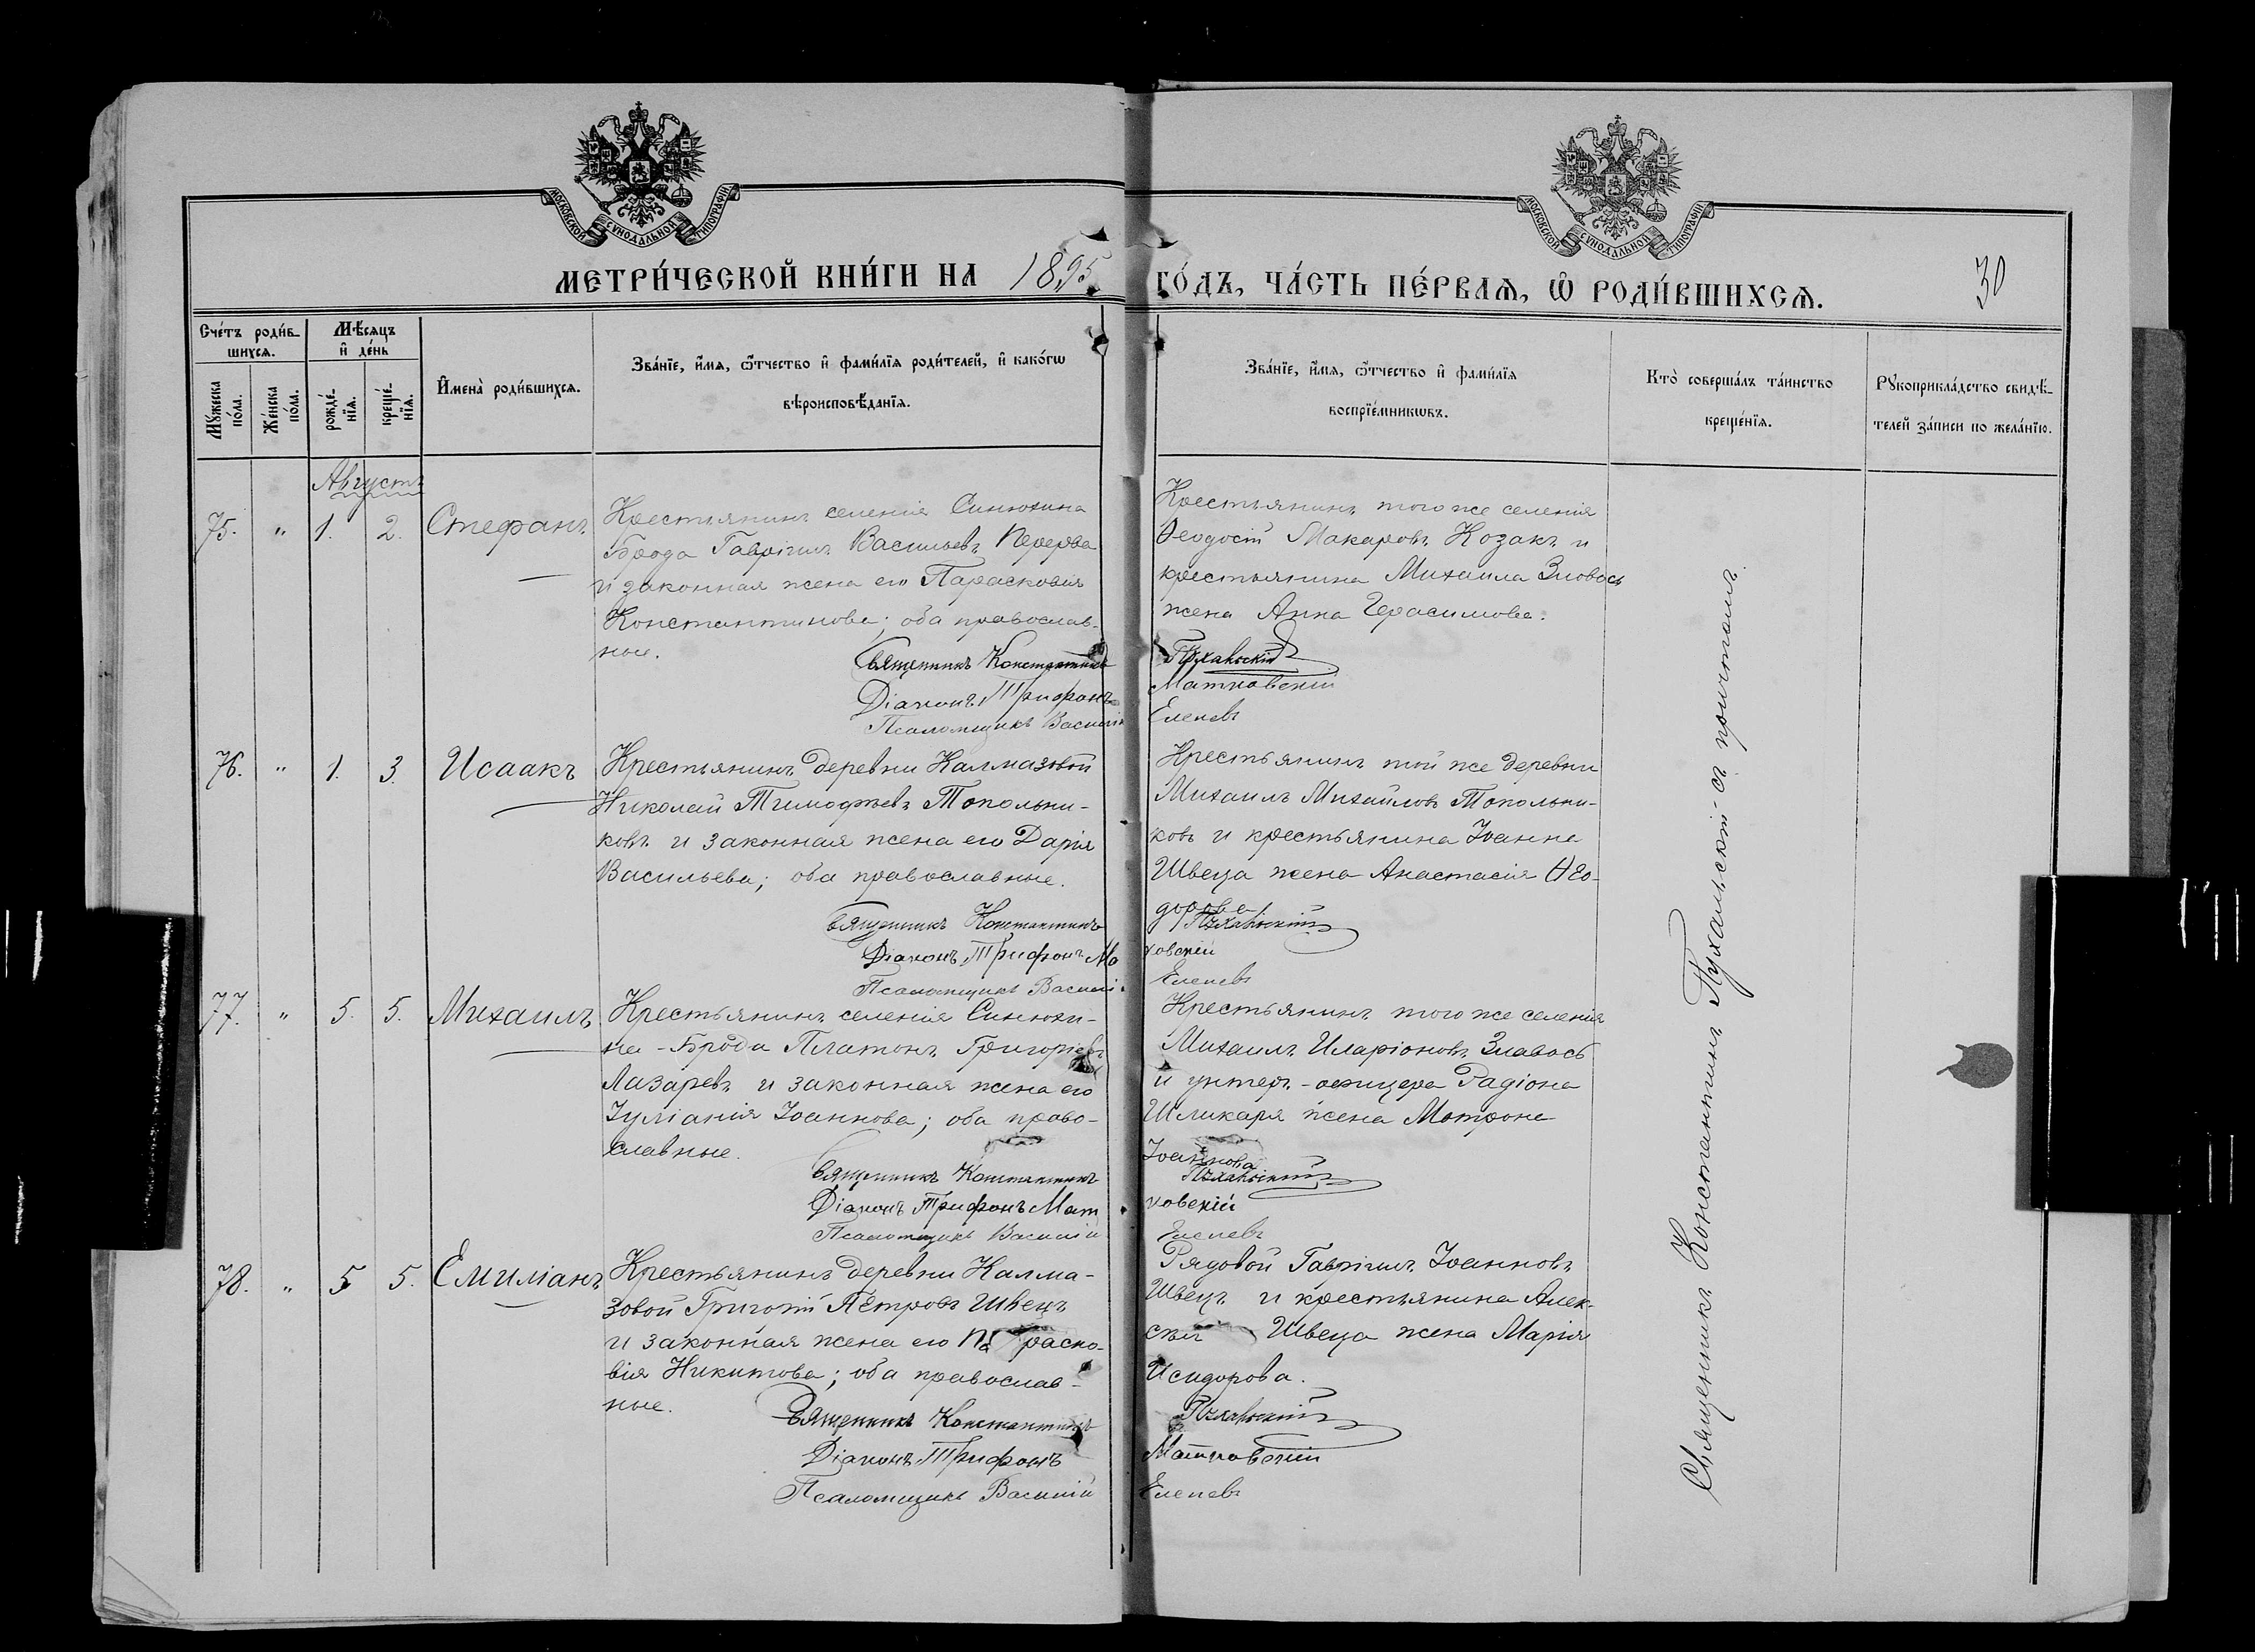 МОСКОВСКОЙ СУНОДАЛЬНОЙ ТИПОГРАФІИ
МОСКОВСКОЙ СУНОДАЛЬНОЙ ТИПОГРАФІИ
МЕТРИ́ЧЕСКОЙ КНИ́ГИ НА 1895 ГО́ДЪ, ЧА́СТЬ ПЕ́РВАѦ, Ѡ РОДИ́ВШИХСѦ.
30
Сче́тъ роди́в-
шихсѧ.
Мꙋ́жеска по́ла.
Же́нска по́ла.
Мѣ́сѧцъ и де́нь
рожде́-нїѧ.
креще́-нїѧ.
Имена̀ роди́вшихсѧ.
Зва́нїе, и́мѧ, ѻ́тчество и фами́лїѧ роди́телей, и како́гѡ
вѣроисповѣ́данїѧ.
Зва́нїе, и́мѧ, ѻ́тчество и фами́лїѧ
воспрїе́мникѡвъ.
Кто̀ соверша́лъ та́инство
креще́нїѧ.
Рꙋкоприкла́дство свидѣ́-
телей за́писи по жела́нїю.
Августъ
75. " 1. 2. Стефанъ
Крестьянинъ селенія Синюхина
Брода Гавріилъ Васильевъ Перерва
и законная жена его Парасковія
Константинова; оба православ-
ные.
Священникъ Константинъ
Діаконъ Трифонъ
Псаломщикъ Василій
Крестьянинъ того же селенія
Ѳеодосій Макаровъ Козакъ и
крестьянина Михаила
жена Анна Герасимова.
Пухальскій
Матковскій
Еленевъ
76. " 1. 3. Исаакъ
Крестьянинъ деревни Калмазовой
Николай Тимофѣевъ Топольни-
ковъ и законная жена его Дарія
Васильева; оба православные.
Священникъ Константинъ
Діаконъ Трифонъ Ма
Псаломщикъ Василій
Крестьянинъ той же деревни
Михаилъ Михайловъ Топольни-
ковъ и крестьянина Іоанна
Швеца жена Анастасія Ѳео-
дорова
Пухальскій
ковскій
Еленевъ
77. " 5. 5. Михаилъ
Крестьянинъ селенія Синюхи-
на-Брода Платонъ Григоріевъ
Лазаревъ и законная жена его
Іуліанія Іоаннова; оба право-
славные.
Священникъ Константинъ
Діаконъ Трифонъ Мат
Псаломщикъ Василій
Крестьянинъ того же селенія
Михаилъ Иларіоновъ
и унтеръ-офицера Радіона
Шликаря жена Матрона
Іоаннова
Пухальскій
ковскій
Еленевъ
78. " 5 5. Емиліанъ
Крестьянинъ деревни Калма-
зовой Григорій Петровъ Швецъ
и законная жена его Параско-
вія Никитова; оба православ-
ные.
Священникъ Константинъ
Діаконъ Трифонъ
Псаломщикъ Василій
Рядовой Гавріилъ Іоанновъ
Швецъ и крестьянина Алек-
сѣя Швеца жена Марія
Исидорова.
Пухальскій
Матковскій
Еленевъ
Священникъ Константинъ Пухальскій съ причтомъ.